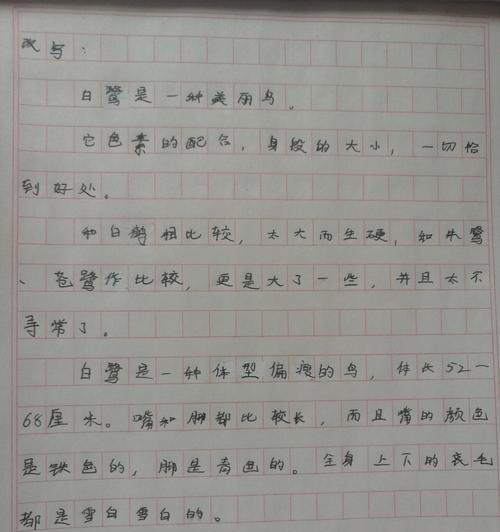 改写:
白鹭是一种美丽鸟。
它色素的配合,身段的大小,一切恰
到好处。
和白鹤相比较,太大而生硬,如朱鹭
、苍鹭作比较,更是大了一些,并且太不
寻常了。
白鹭是一种体型偏瘦的鸟,体长52一
68厘米。嘴和脚都比较长,而且嘴的颜色
是铁色的,脚是青色的。全身上下的衰毛
都是雪白雪白的。